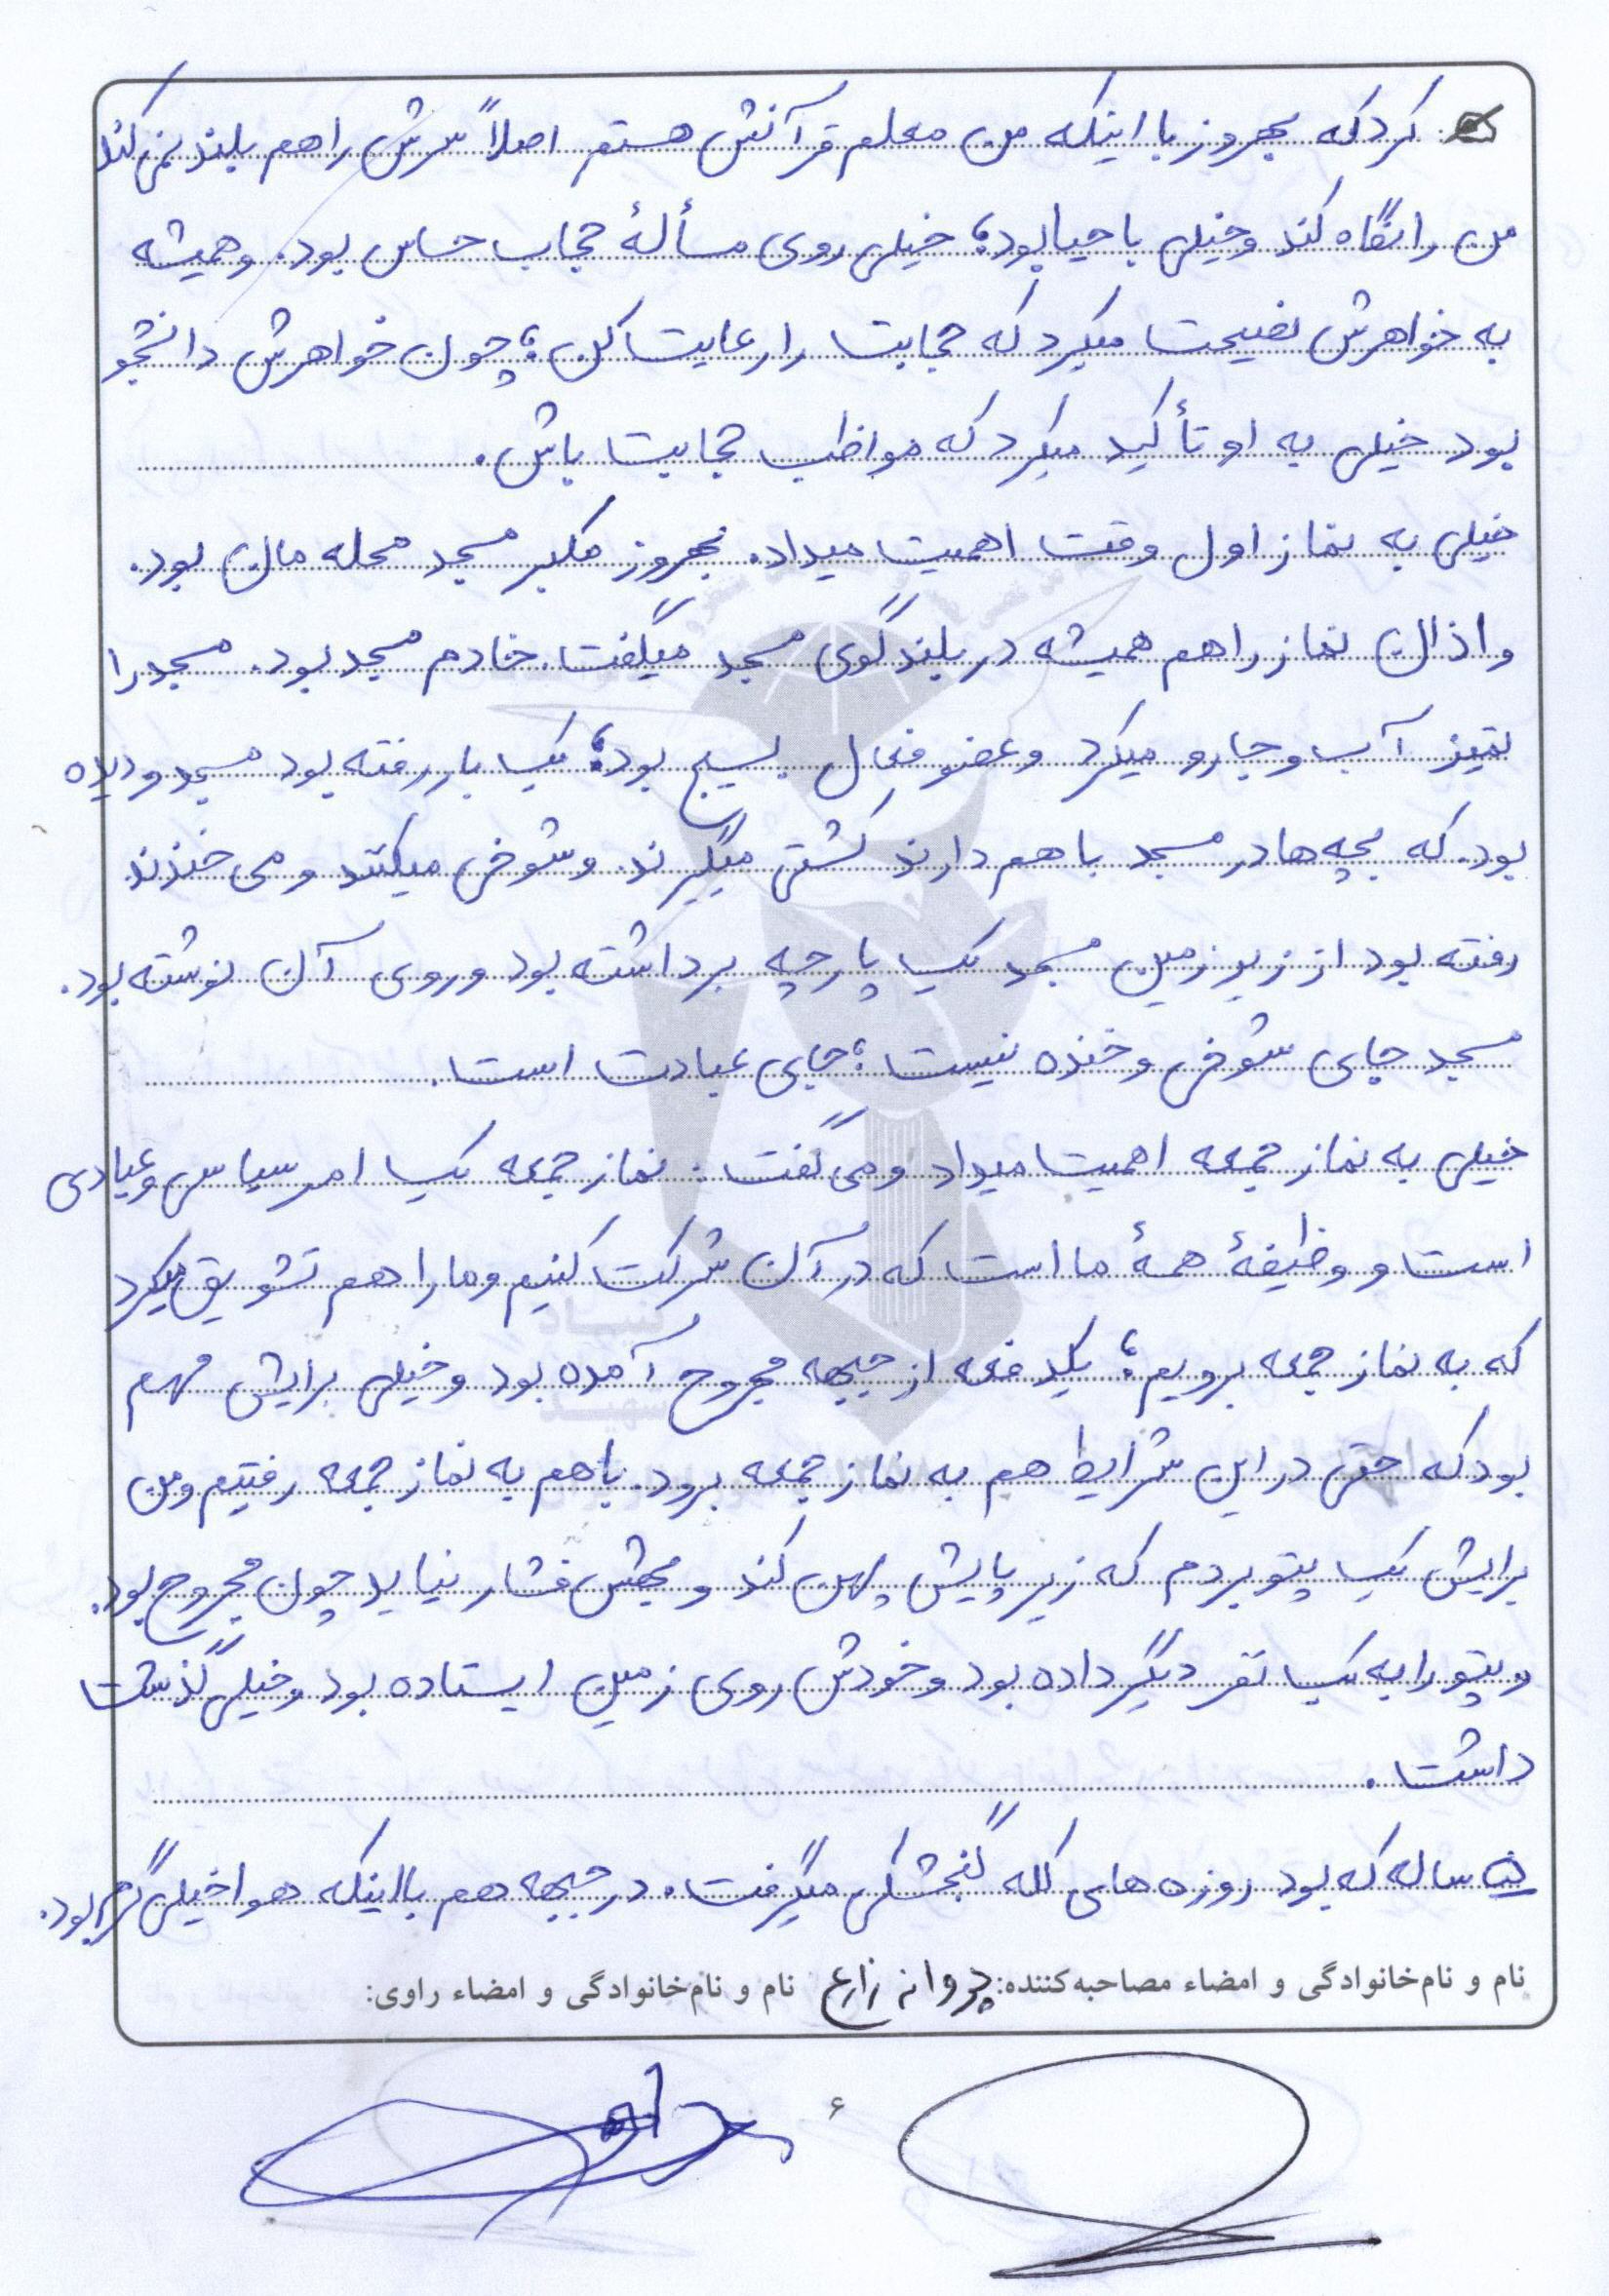 کرد که بهروز با اینکه من معلم قرآنش هستم اصلاً سرش را هم بلند نمی‌کند
من را نگاه کند و خیلی با حیا بود؛ خیلی روی مسألهٔ حجاب حساس بود. و همیشه
به خواهرش نصیحت میکرد که حجابت را رعایت کن؛ چون خواهرش دانشجو
بود خیلی به او تأکید میکرد که مواظب حجابت باش.
خیلی به نماز اول وقت اهمیت میداد. بهروز مکبر مسجد محله مان بود.
و اذان نماز را هم همیشه در بلندگوی مسجد میگفت. خادم مسجد بود. مسجد را
تمیز آب و جارو میکرد و عضو فعال بسیج بود؛ یک بار رفته بود مسجد و دیده
بود. که بچه ها در مسجد با هم دارند کشتی میگیرند. و شوخی میکنند و می خندند
رفته بود از زیرزمین مسجد یک پارچه برداشته بود و روی آن نوشته بود.
مسجد جای شوخی و خنده نیست؛ جای عبادت است.
خیلی به نماز جمعه اهمیت میداد و می گفت: نماز جمعه یک امر سیاسی و عبادی
است و وظیفهٔ همهٔ ما است که در آن شرکت کنیم و ما را هم تشویق میکرد
که به نماز جمعه برویم؛ یکدفعه از جبهه مجروح آمده بود و خیلی برایش مهم
بود که حتی در این شرایط هم به نماز جمعه برود. با هم به نماز جمعه رفتیم و من
برایش یک پتو بردم که زیر پایش پهن کند و بهش فشار نیاید چون مجروح بود.
و پتو را به یک نفر دیگر داده بود و خودش روی زمین ایستاده بود و خیلی گذشت
داشت.
۵ ساله که بود روزه های کله گنجشکی میگرفت. در جبهه هم با اینکه هوا خیلی گرم بود.
نام و نام‌خانوادگی و امضاء مصاحبه‌کننده: پروانه زارع نام و نام‌خانوادگی و امضاء راوی:
۶